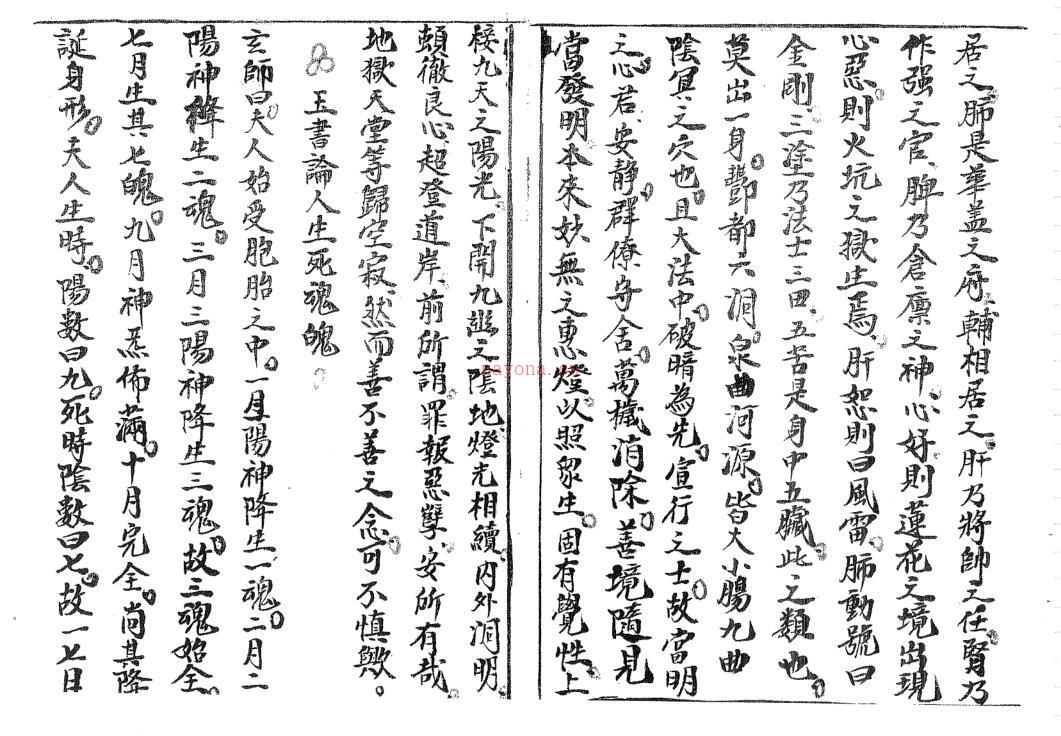 居之。肺是華盖之府、輔相居之。肝乃將帥之任。賢乃
作强之官、脾乃倉廪之神。心好則蓮花之境出現
心惡則火坑之獄生焉。肝恕則曰風雷。肺動號曰
金剛、三塗乃法士三田、五苦是身中五臟此之類也。
莫出一身。酆都六洞。泉曲河源。皆大小腸九曲
陰冥之穴也。且大法中。破暗為先。宣行之士。故當明
之心君。安静。群僚守舍。萬穢消除。善境隨見
當發明本來妙無之惠燈。以照衆生。固有覺性。上
接九天之陽光、下開九幽之陰地燈光相續。内外洞明。
頓徹良心、超登道岸、前所謂罪報惡孽、安所有哉。
地獄天堂等歸空寂。然而善不善之念。可不慎歟。
玉書論人生死魂魄
玄師曰。夫人始受胞胎之中。一月陽神降生一魂。二月二
陽神降生二魂。三月三陽神降生三魂。故三魂始全。
七月生其七魄。九月神炁佈滿。十月完全。尚其降
誕身形。夫人生時。陽数曰九。死時陰数曰七。故一七日
nayona.cn